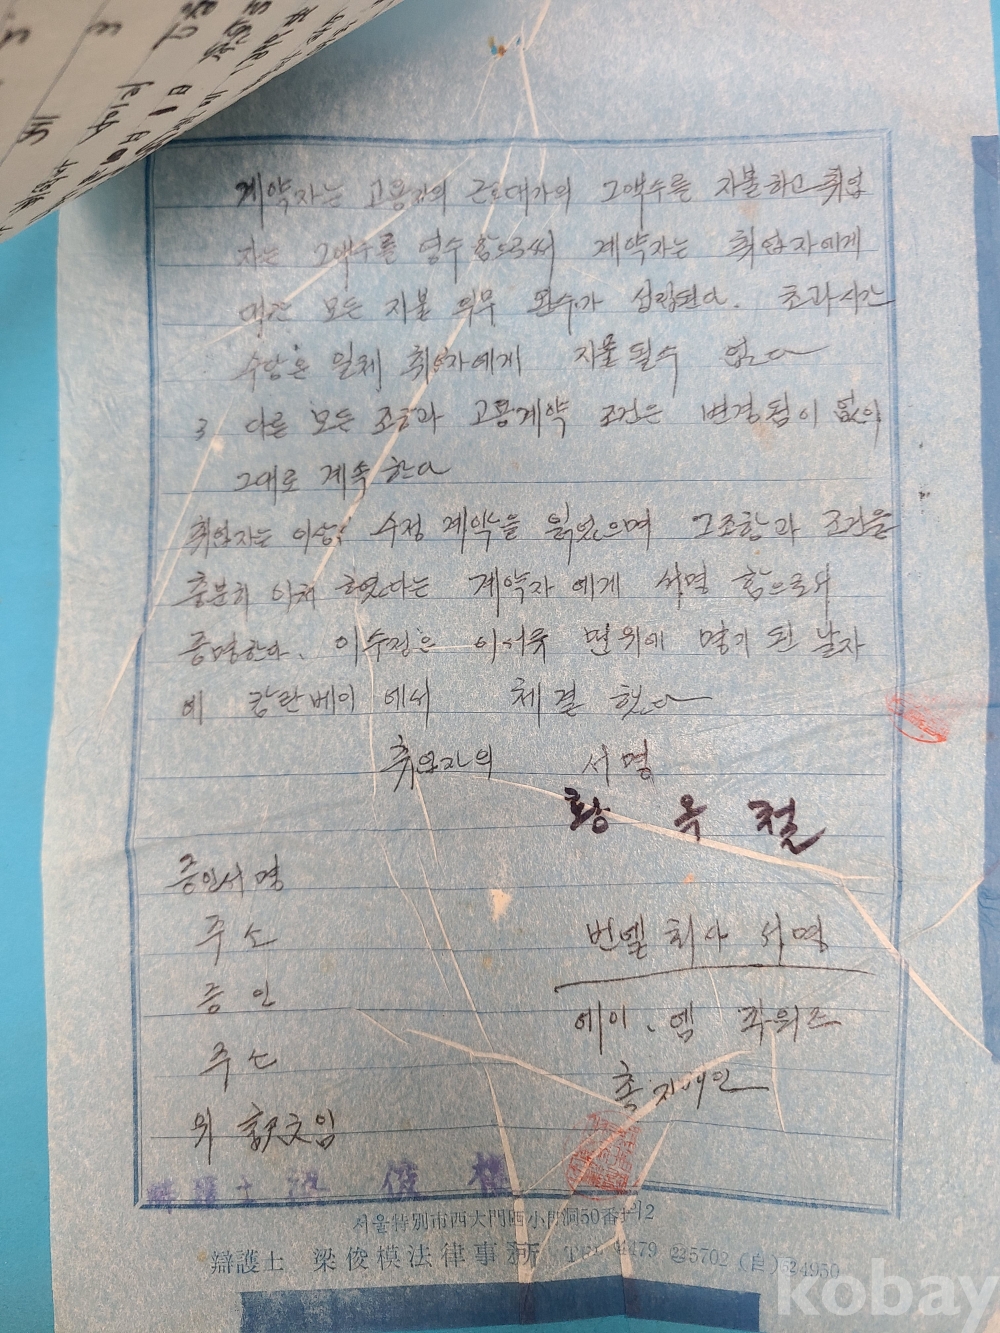 계약자는 고용자의 근로대가의 그액수를 지불하고 취업
자는 그액수를 영수함으로써 계약자는 취업자에게
모든 지불 의무 완수가 성립된다. 초과시간
수당은 일체 취업자에게 지불될수 없다
3 다른 모든 조항과 고용계약 조건은 변경됨이 없이
그대로 계속한다
취업자는 이상 수정 계약을 읽었으며 그조항과 조건을
충분히 이해 하였다는 계약자에게 서명 함으로서
증명한다. 이수정은 이서육 면위에 명기 된 날자
에 캄란베이에서 체결 했다
취업자의 서명
황옥철
증인서명
주소
번넬 회사 서명
증인
에이.엠 좌위즈
주소
총지배인
위 訳文임
辯護士 梁俊模
서울特別市西大門區小門洞50番地12
辯護士 梁俊模法律事務所 TEL 479 5702 (自) 4950
kobay